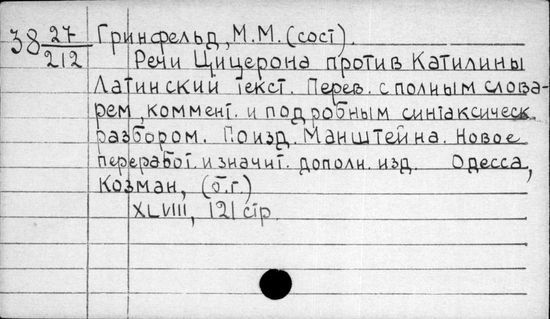 38 27/212 Гринфельд, М.М. (сост).
Речи Цицерона против Катилины
Латинский текст. Перев. с полным слова-
рем, коммент. и подробным синтаксическ.
разбором. По изд. Манштейна. Новое
переработ. и значит. дополн. изд. Одесса,
Козман, (б.г.)
XLVIII, 121 стр.